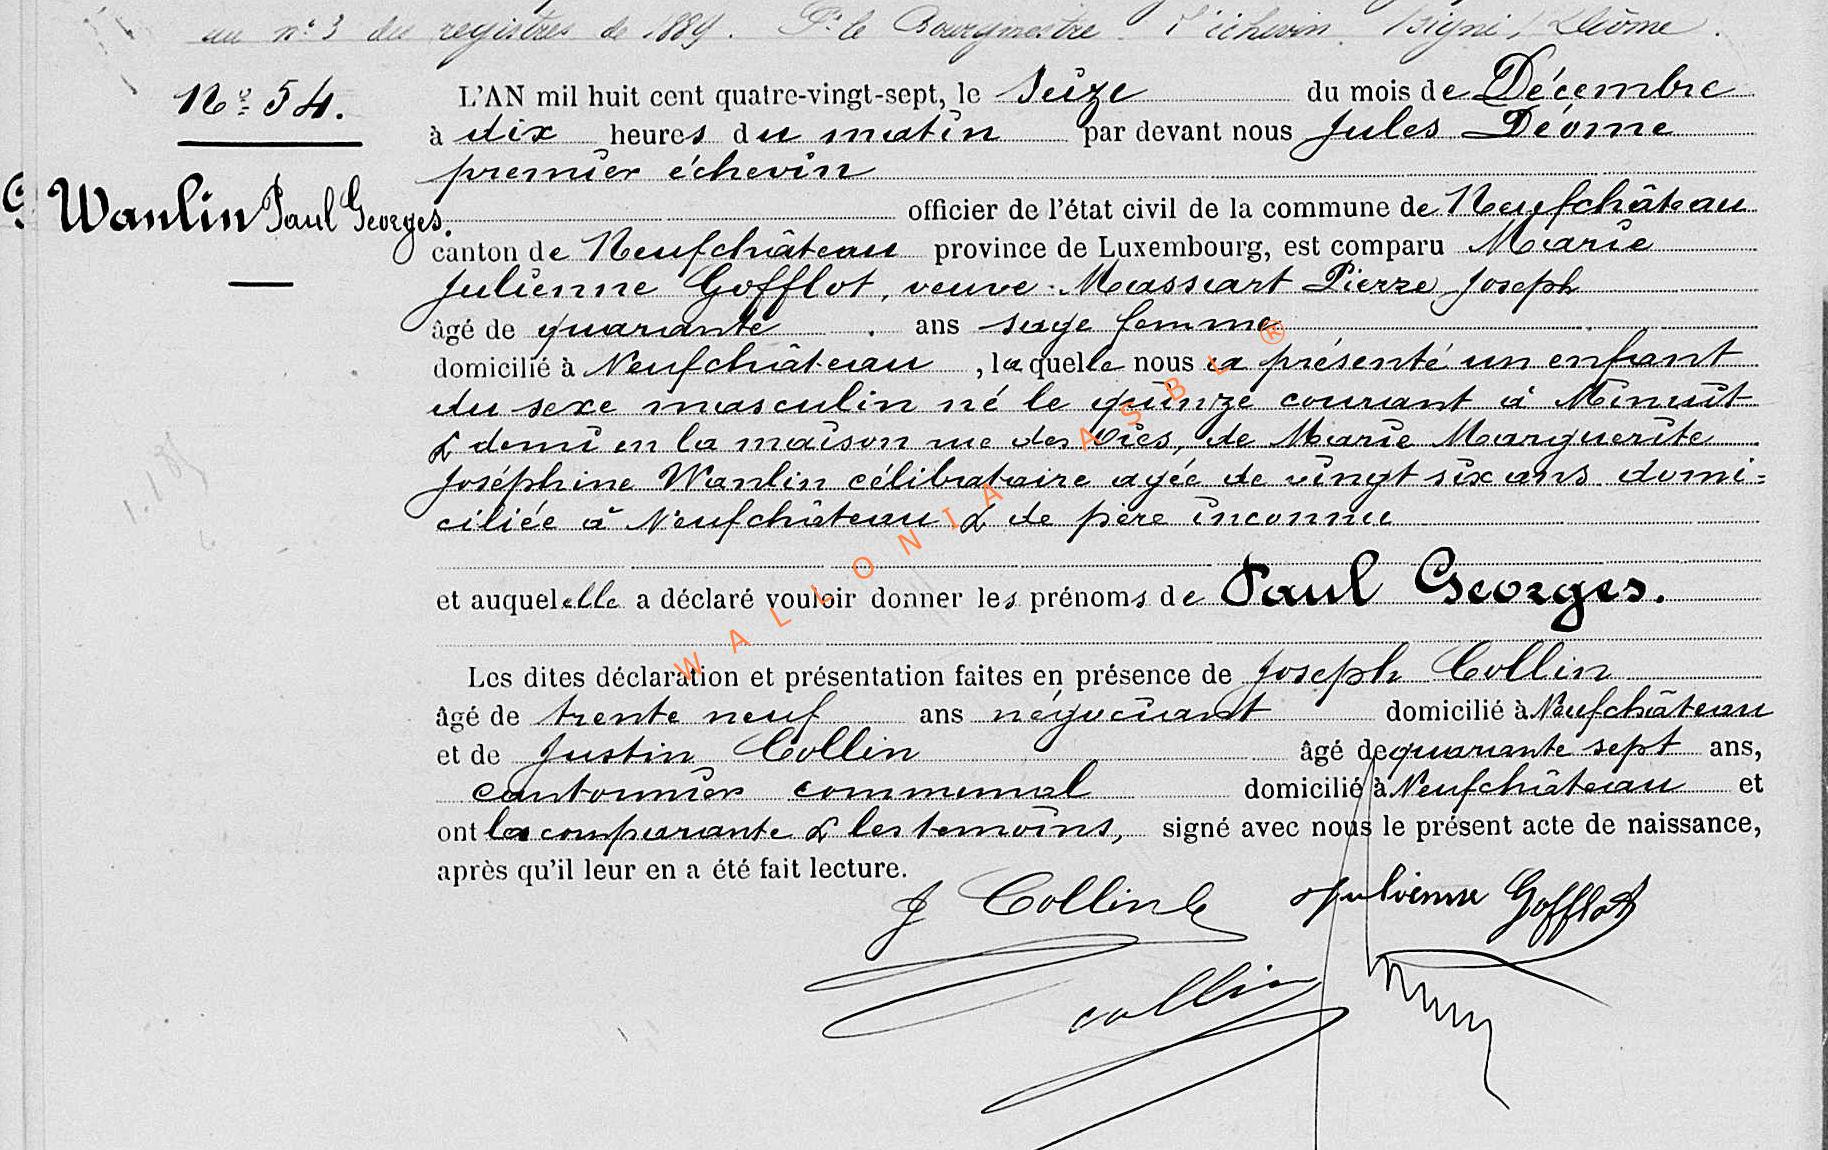 au n° 3 des registres de 1889. Pr le Bourgmestre L'échevin, signé, Déôme.
N° 54.
Wanlin Paul Georges.
L'AN mil huit cent quatre-vingt-sept, le Seize du mois de Décembre
à dix heures du matin par devant nous Jules Déome
premier échevin
officier de l'état civil de la commune de Neufchâteau
canton de Neufchâteau province de Luxembourg, est comparu Marie
Julienne Gofflot, veuve Massart Pierre Joseph
âgé de quarante ans sage femme
domicilié à Neufchâteau, laquelle nous a présenté un enfant
du sexe masculin né le quinze courant à Minuit
& demi en la maison rue des Oies, de Marie Marguerite
Joséphine Wanlin célibataire agée de vingt six ans domi=
ciliée à Neufchâteau & de père inconnu
et auquel elle a déclaré vouloir donner les prénoms de Paul Georges.
Les dites déclaration et présentation faites en présence de Joseph Collin
âgé de trente neuf ans négociant domicilié à Neufchâteau
et de Justin Collin âgé de quarante sept ans,
cantonnier communal domicilié à Neufchâteau et
ont la comparante & les temoins, signé avec nous le présent acte de naissance,
après qu'il leur en a été fait lecture.
J Collin Julienne Gofflot
collin
WALLONIA ASBL ®